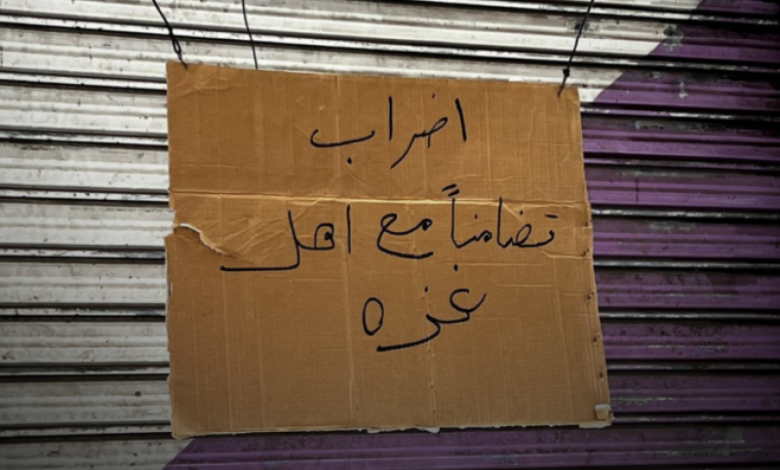 اضراب
تضامناً مع اهل
غزه